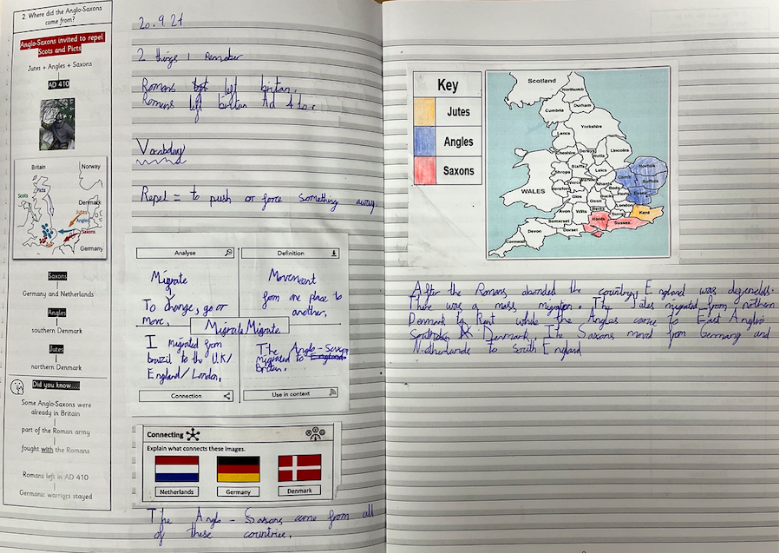 2. Where did the Anglo-Saxons
come from?
Anglo-Saxons invited to repel
Scots and Picts
Jutes + Angles + Saxons
AD 410
Britain
Norway
Scots
Picts
Denmark
Jutes
Angles
Saxons
Germany
Saxons
Germany and Netherlands
Angles
southern Denmark
Jutes
northern Denmark
Did you know...
Some Anglo-Saxons were
already in Britain
part of the Roman army
fought with the Romans
Romans left in AD 410
Germanic warriors stayed
20.9.21
2 things I remember
Romans left britain.
Romans left britan Ad 410
Vocabulary
Repel = to push or force something away.
Analyse
Migrate
To change, go or
move.
Definition
Movement
from one place to
another.
Migrate Migrate
I migrated from
brazil to the U.K/
England/London.
Connection
The Anglo-Saxon
migrated to England
britan.
Use in context
Connecting
Explain what connects these images.
Netherlands
Germany
Denmark
The Anglo-Saxons came from all
of these countries.
Key
Jutes
Angles
Saxons
Scotland
Northumb
Cumbria
Durham
Yorkshire
Lancs
Lincolns
WALES
Norfolk
London
Kent
Sussex
Hants
Wilts
Somerset
Dorset
Devon
Cornwall
After the Romans abanded the country, England was
There was a mass migration. The Jutes migrated from nothern
Denmark to Kent while the Angles came to East Anglia
Denmark. The Saxons moved from Germany and
Netherlands to South England